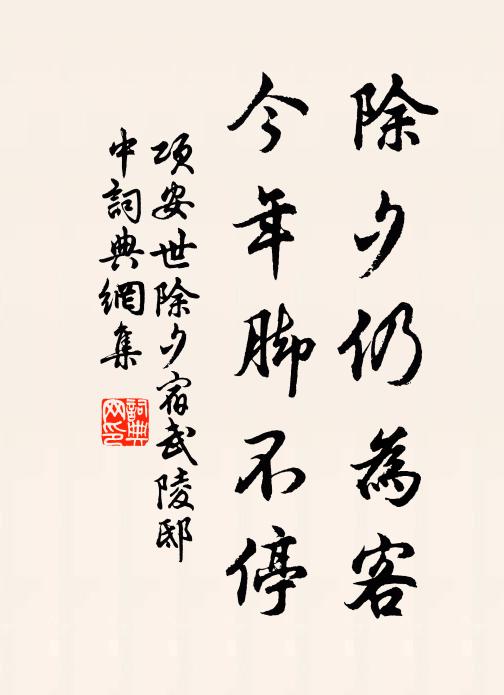 除夕仍為客
今年脚不停
項安世除夕宿武陵邸
中詞典網集
詞典
网印